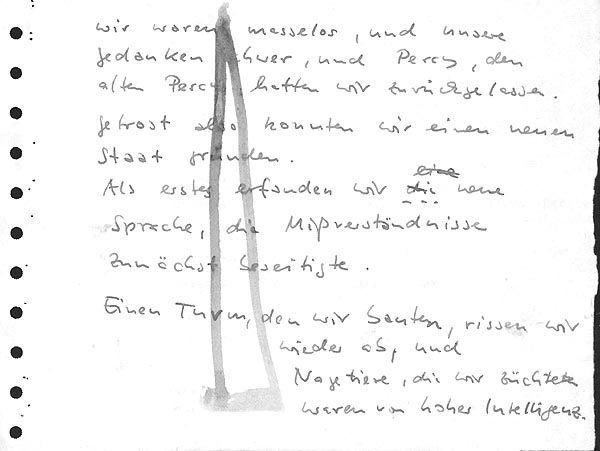 wir waren messelos, und unsere
Gedanken schwer, und Percy, den
alten Percy hatten wir zurückgelassen.
Getrost also konnten wir einen neuen
Staat gründen.
Als erstes erfanden wir die neue
Sprache, die Mißverständnisse
zunächst beseitigte.
Einen Turm, den wir bauten, rissen wir
wieder ab, und
Nagetiere, die wir züchteten
waren von hoher Intelligenz.